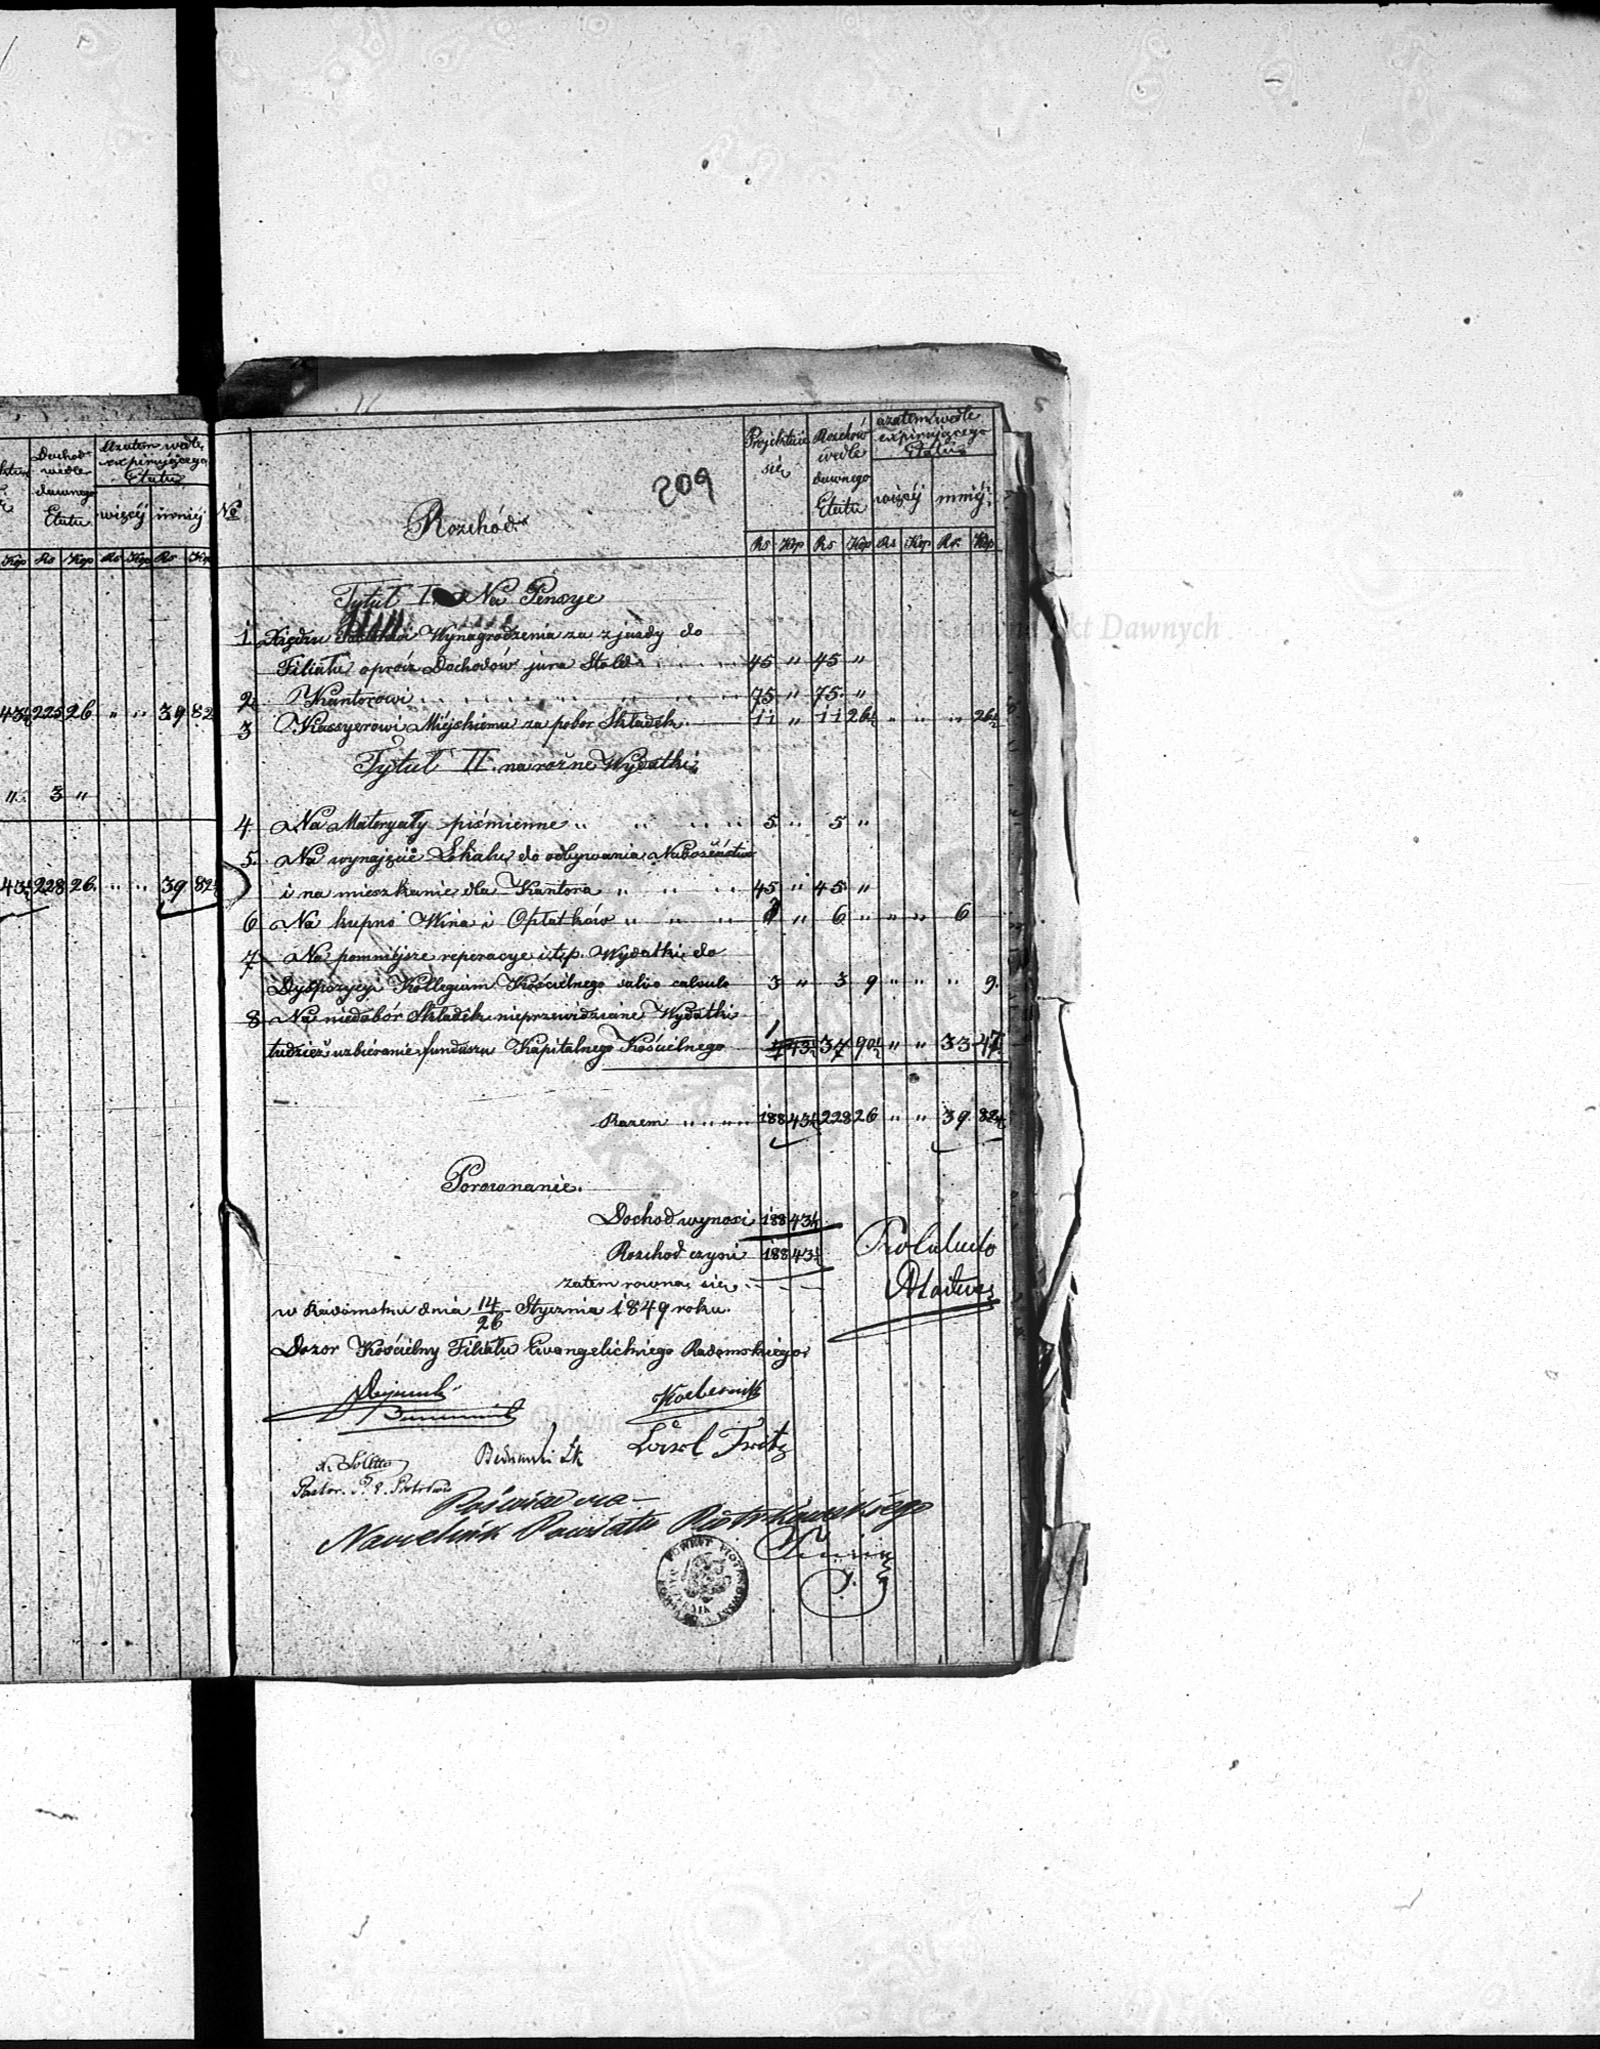 Dochod
wedle
dawnego
Etatu
Azatem wedle
expirującego
Etatu
więcej mniej
Kop Rs Kop Rs Kop Rs Kop
43½ 225 26 " " 39 82
" 3 "
43½ 228 26 " " 39 82½
209
No
Rozchód
Projektuie
się
Rozchód
wedle
dawnego
Etatu
azatem wedle
expirującego
Etatu
więcej mniej
Rs Kop Rs Kop Rs Kop Rs Kop
Tytuł I. Na Pensye
1 Xiędzu Wynagrodzenia za zjazdy do
Filiału oprócz Dochodów jura Stolae 45 " 45 "
2 Kantorowi 75 " 75 "
3 Kassyerowi Miejskiemu za pobor Składek 11 " 11 26½ " " " 26½
Tytuł II. na rożne Wydatki
4 Na Materyały piśmienne 5 " 5 "
5 Na wynajęcie Lokalu do odbywania Nabożeństwa
i na mieszkanie dla Kantora 45 " 45 "
6 Na kupno Wina i Opłatków " 6 " " " 6
7 Na pomniejsze reperacye i t.p. Wydatki do
Dyspozycyi Kollegium Kościelnego salvo calculo 3 " 3 9 " " " 9
8 Na niedobór Składek nieprzewidziane Wydatki
tudzież uzbieranie funduszu Kapitalnego Kościelnego 4 43½ 37 90½ " " 33 47
Razem 188 43½ 228 26 " " 39 82½
Porównanie.
Dochod wynosi 188 43½
Rozchod czyni 188 43½
zatem rowna się
Pro Calculo
w Radomsku dnia 14/26 Stycznia 1849 roku.
Dozor Kościelny Filiału Ewangelickiego Radomskiego
Karol Fritz
Pastor
Poświadcza
Naczelnik Powiatu Piotrkowskiego